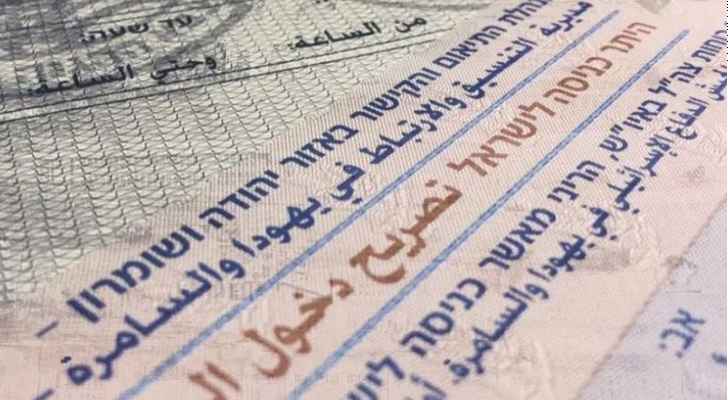 עד שעה:
من الساعة:
وحتى الساعة:
התיאום והקישור באזור יהודה ושומרון –
مديرية التنسيق والارتباط في يهودا والسامرة –
היתר כניסה לישראל تصريح دخول
צה"ל באיו"ש, הריני מאשר כניסה
الدفاع الإسرائيلي في يهودا والسامرة.
אב.